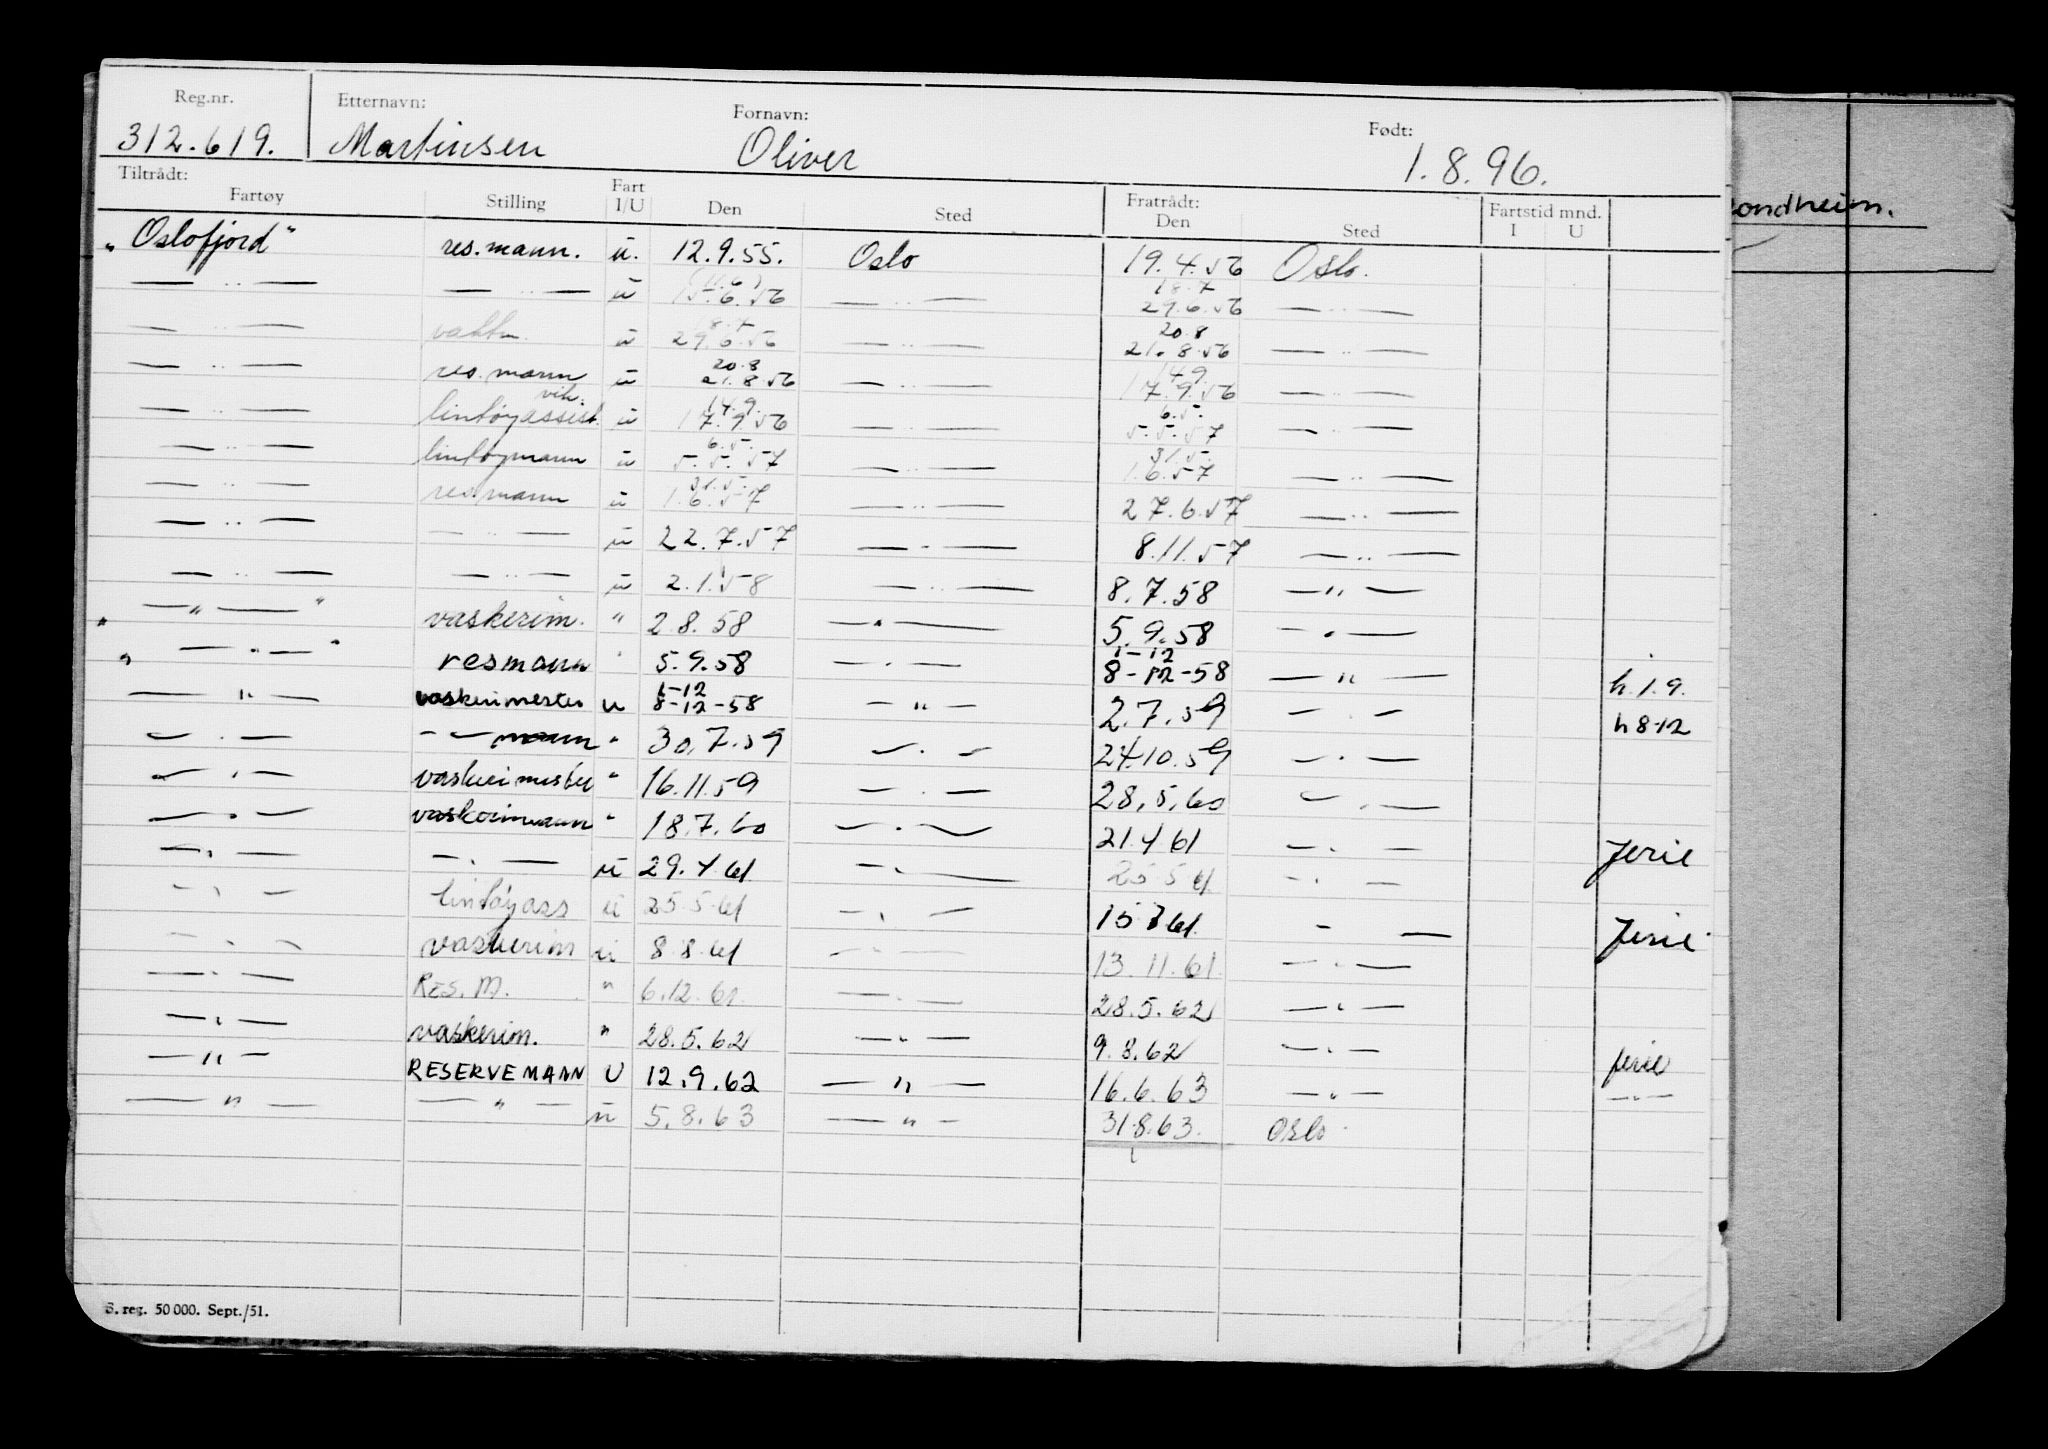 Reg.nr. Etternavn: Fornavn: Født:
312.619. Martinsen Oliver 1.8.96.
Tiltrådt: Fartøy Stilling Fart I/U Den Sted Fratrådt: Den Sted Fartstid mnd. I U
„Oslofjord" res.mann. u. 12.9.55. Oslo 19.4.56 Oslo.
— „ — — „ — u (11.6) 15.6.56 — „ — 18.7 29.6.56 — „ —
— „ — u 18.7 29.6.56 — „ — 20.8 21.8.56 — „ —
— „ — res.mann u 20.8 21.8.56 — „ — 14.9 17.9.56 — „ —
— „ — lintøyassist. vik. u 14.9. 17.9.56 — „ — 6.5. 5.5.57 — „ —
— „ — lintøymann u 6.5. 5.5.57 — „ — 31.5. 1.6.57 — „ —
— „ — res.mann u 31.5. 1.6.57 — „ — 27.6.57 — „ —
— „ — — „ — u 22.7.57 — „ — 8.11.57 — „ —
— „ — — „ — u 2.1.58 — „ — 8.7.58 — „ —
„ — „ — " vaskerim. " 2.8.58 — „ — 5.9.58 — „ —
„ — „ — " resmann " 5.9.58 — „ — 1-12 8-12-58 — „ — h.1.9.
— „ — vaskerimester u 1-12 8-12-58 — „ — 2.7.59 — „ — h 8-12
— „ — — „ — mann " 30.7.59 — „ — 24.10.59 — „ —
— „ — vaskerimester " 16.11.59 — „ — 28.5.60 — „ —
— „ — vaskerimann " 18.7.60 — „ — 21.4.61 — „ — ferie
— „ — — „ — u 29.4.61 — „ — 25.5.61 — „ —
— „ — lintøyass u 25.5.61 — „ — 15.7.61. — „ — ferie
— „ — vaskerim u 8.8.61 — „ — 13.11.61. — „ —
— „ — Res. M. " 6.12.61. — „ — 28.5.62 — „ —
— „ — vaskerim. " 28.5.62 — „ — 9.8.62 — „ — ferie
— „ — RESERVEMANN U 12.9.62 — „ — 16.6.63 — „ — — „ —
— „ — — „ — u 5.8.63 — „ — 31.8.63. Oslo
S. reg. 50 000. Sept./51.
ondheim.